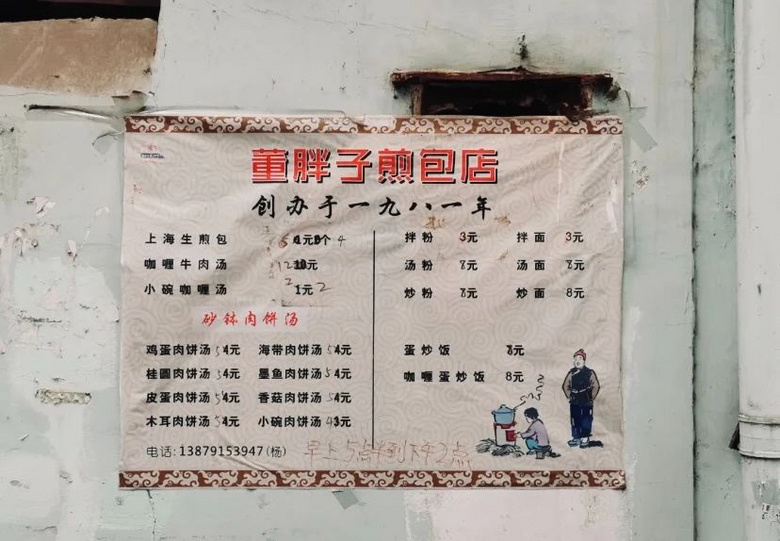 董胖子煎包店
创办于一九八一年
上海生煎包 元 个 4
咖喱牛肉汤 12 元
小碗咖喱汤 1元 2
砂钵肉饼汤
鸡蛋肉饼汤 5 4元 海带肉饼汤 5 4元
桂圆肉饼汤 5 4元 墨鱼肉饼汤 5 4元
皮蛋肉饼汤 5 4元 香菇肉饼汤 5 4元
木耳肉饼汤 5 4元 小碗肉饼汤 4 3元
电话:13879153947(杨)
拌粉 3元 拌面 3元
汤粉 元 汤面 元
炒粉 元 炒面 8元
蛋炒饭 元
咖喱蛋炒饭 8元
早上5点 到下午2点